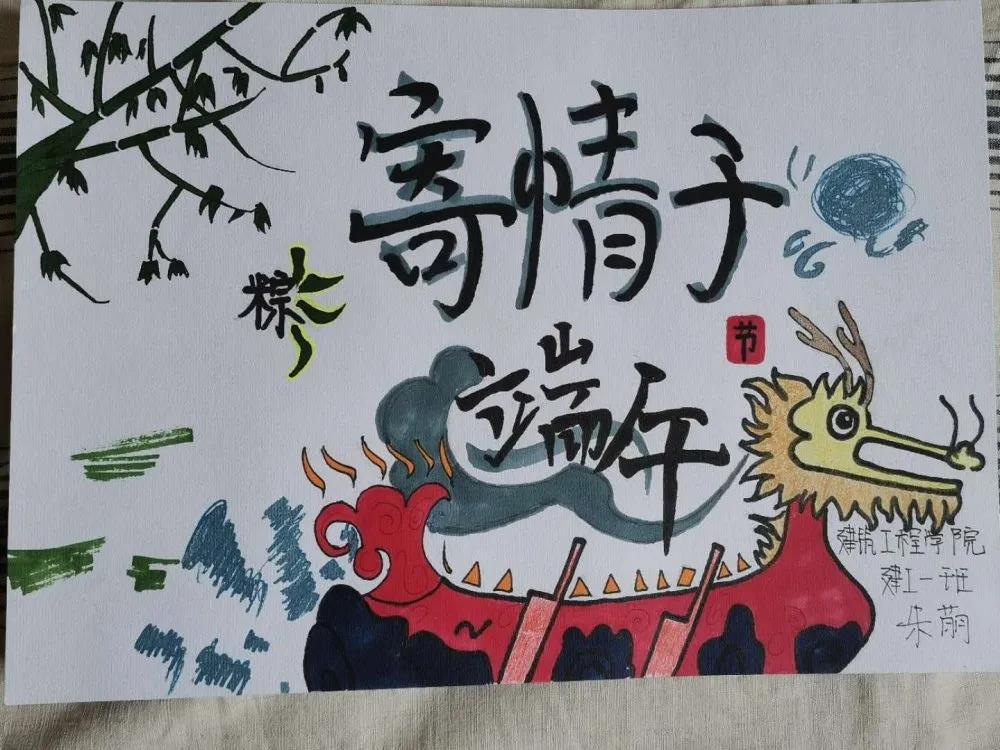 寄情于
粽
节
端午
建筑工程学院
建工一班
朱萌